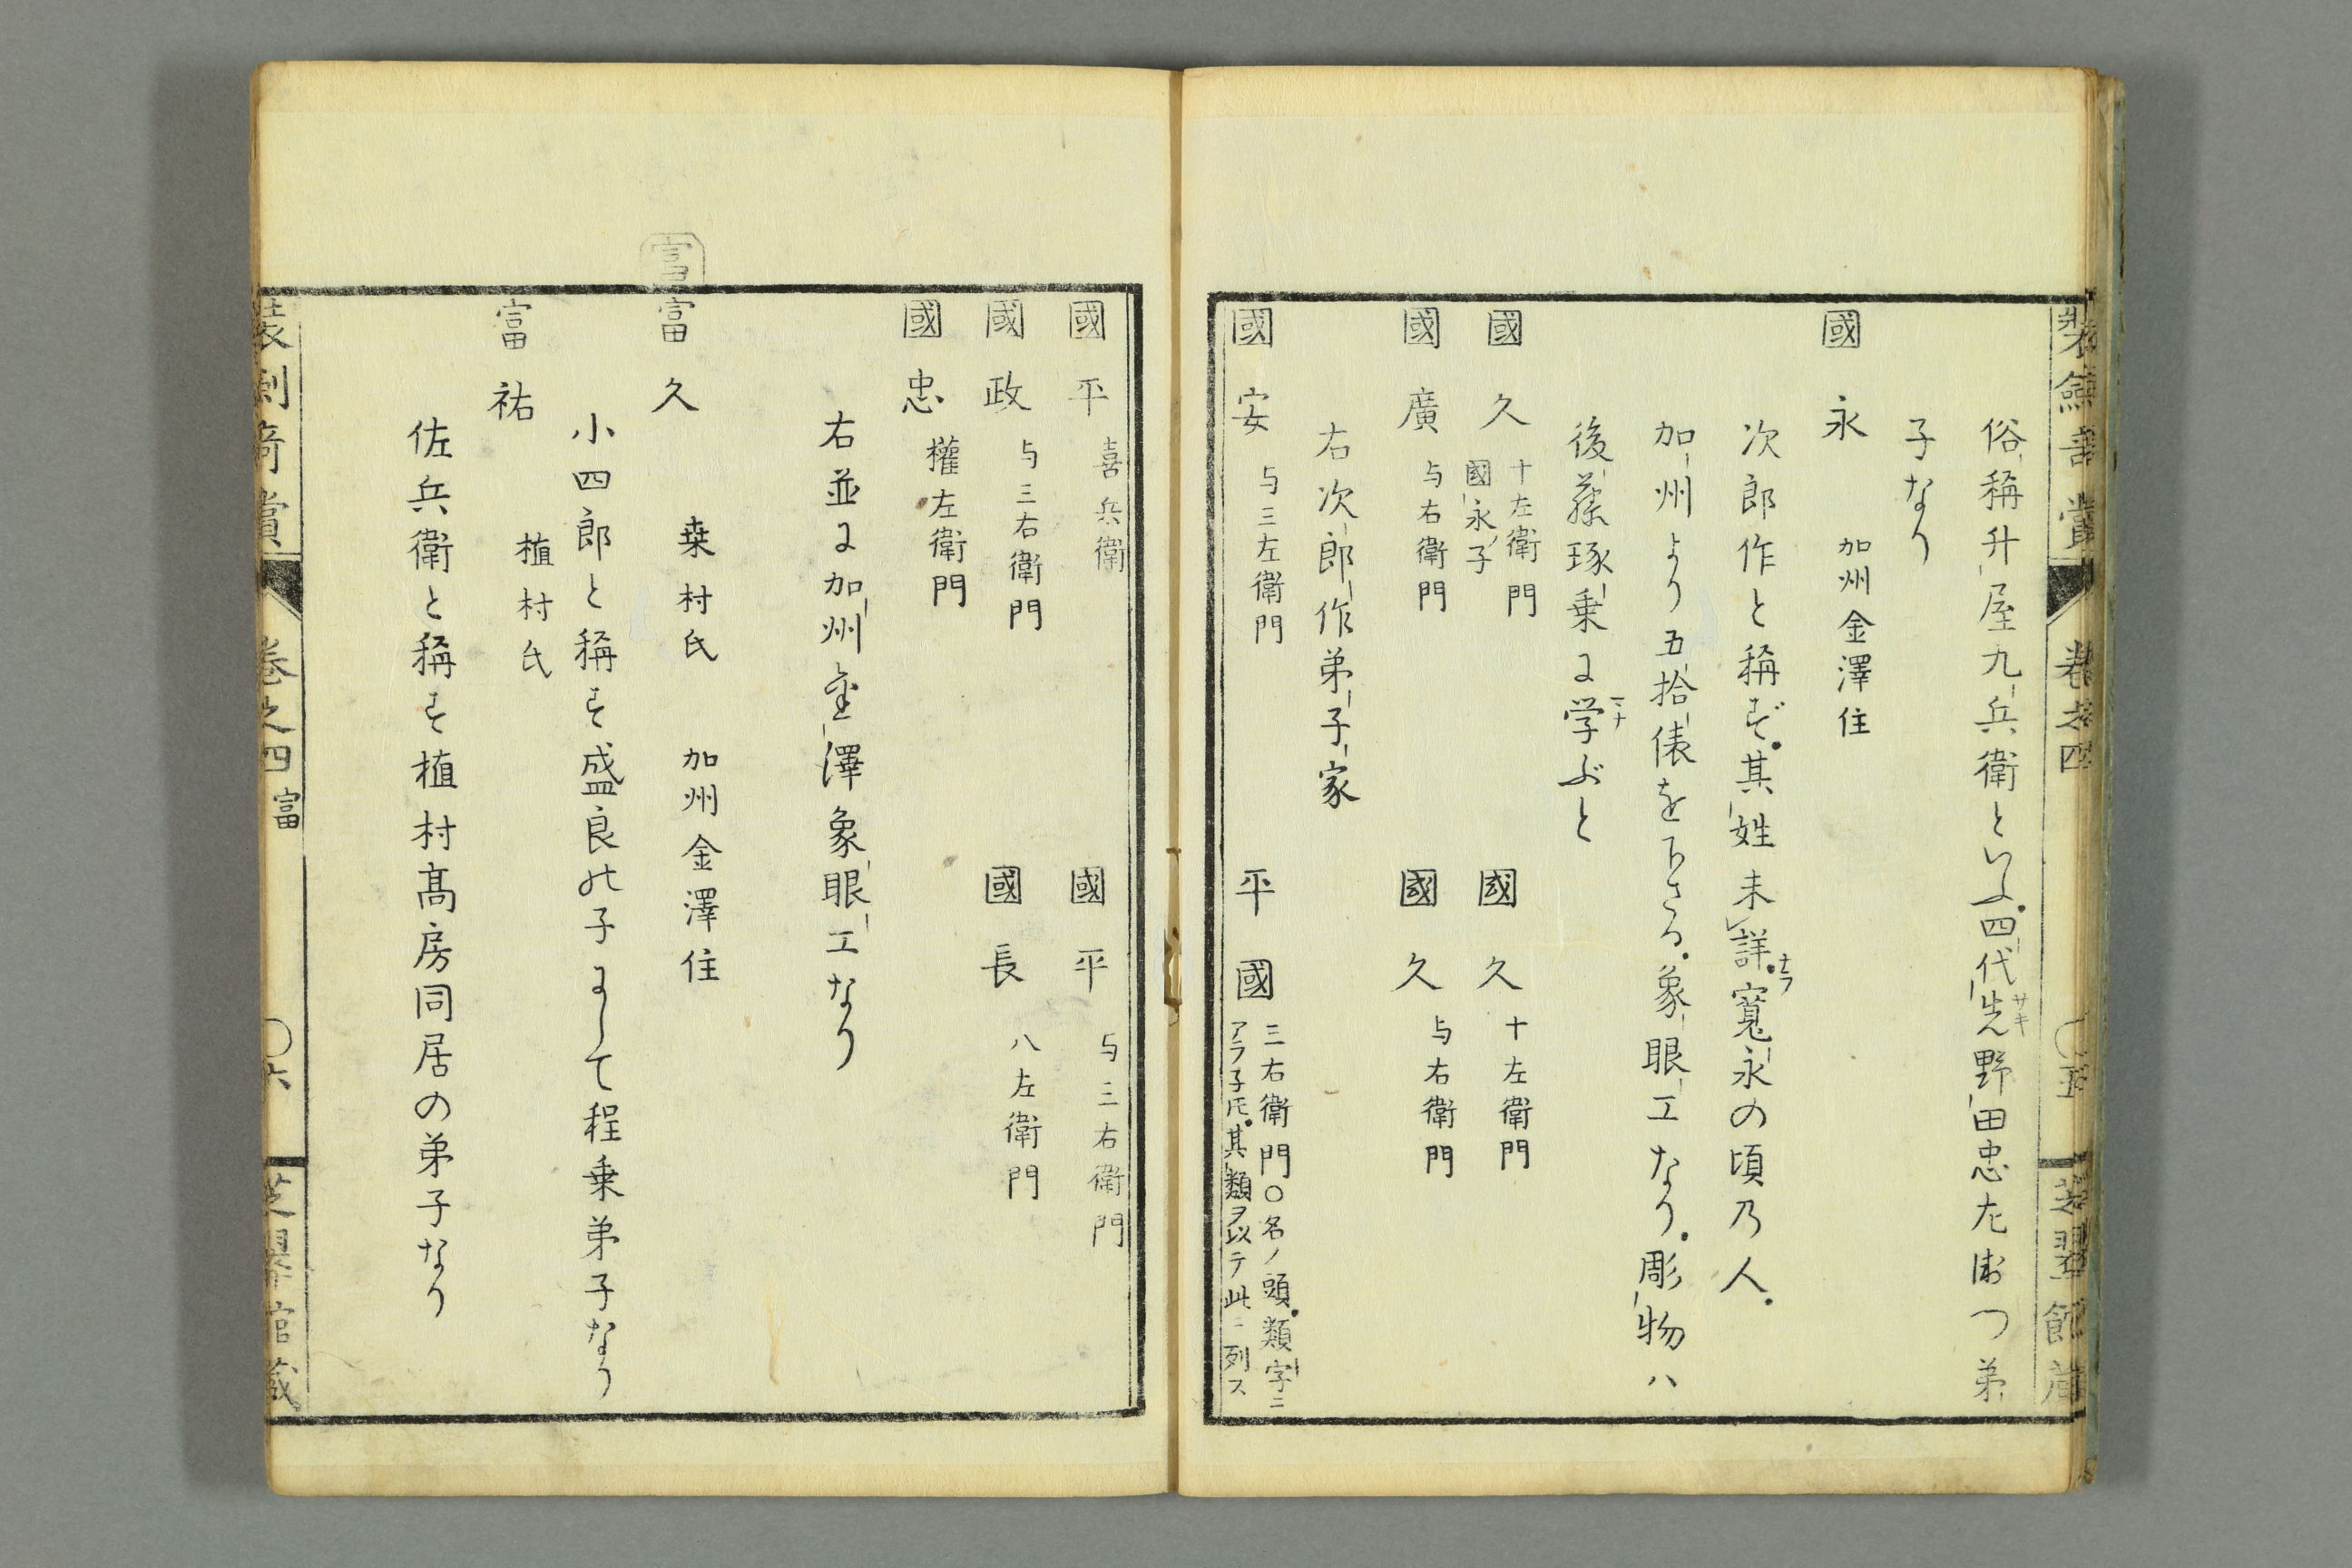 俗稱升屋九兵衛といふ四代先野田忠左衛つ弟
サキ
子なり
國永 加州金澤住
次郎作と稱ず其姓未詳寛永の頃乃人
加州より五拾俵を下さる象眼工なり彫物ハ
後藤琢乗に学ぶと
國久 十左衛門 國永子 國久 十左衛門
國廣 与右衛門 國久 与右衛門
右次郎作弟子家
國安 与三左衛門 平國 三右衛門○名ノ頭類字ニ
アラ子𪜈其類ヲ以テ此ニ列ス
裝劍奇賞 卷之四 ○五 芝翠館藏
國平 喜兵衛 國平 与三右衛門
國政 与三右衛門 國長 八左衛門
國忠 權左衛門
右並に加州金澤象眼工なり
富
富久 桒村氏 加州金澤住
小四郎と稱す盛良の子にして程乗弟子なり
富祐 植村氏
佐兵衛と稱す植村髙房同居の弟子なり
裝劍奇賞 卷之四 富 ○六 芝翠館藏